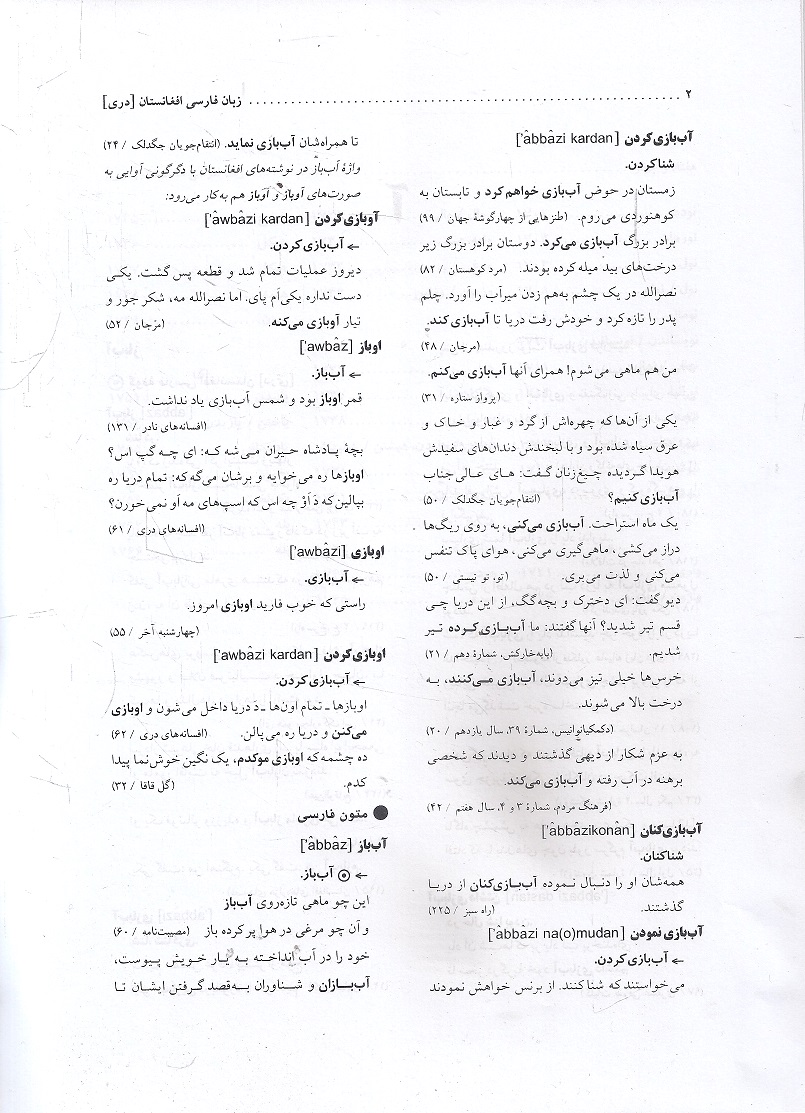 ۲ ........ زبان فارسی افغانستان [دری]
آب‌بازی کردن ['âbbâzi kardan]
شنا کردن.
زمستان در حوض آب‌بازی خواهم کرد و تابستان به
کوهنوردی می‌روم. (طنزهایی از چهارگوشهٔ جهان / ۹۹)
برادر بزرگ آب‌بازی می‌کرد. دوستان برادر بزرگ زیر
درخت‌های بید میله کرده بودند. (مرد کوهستان / ۸۲)
نصرالله در یک چشم به‌هم زدن میرآب را آورد. چلم
پدر را تازه کرد و خودش رفت دریا تا آب‌بازی کند.
(مرجان / ۴۸)
من هم ماهی می‌شوم! همرای آنها آب‌بازی می‌کنم.
(پرواز ستاره / ۳۱)
یکی از آن‌ها که چهره‌اش از گرد و غبار و خاک و
عرق سیاه شده بود و با لبخندش دندان‌های سفیدش
هویدا گردیده چیغ‌زنان گفت: های عالی‌جناب
آب‌بازی کنیم؟ (انتقام‌جویان جگدلک / ۵۰)
یک ماه استراحت. آب‌بازی می‌کنی، به روی ریگ‌ها
دراز می‌کشی، ماهی‌گیری می‌کنی، هوای پاک تنفس
می‌کنی و لذت می‌بری. (تو، تو نیستی / ۵۰)
دیو گفت: ای دخترک و بچه‌گگ، از این دریا چی
قسم تیر شدید؟ آنها گفتند: ما آب‌بازی کرده تیر
شدیم. (پایه‌خارکش، شمارهٔ دهم / ۲۱)
خرس‌ها خیلی تیز می‌دوند، آب‌بازی می‌کنند، به
درخت بالا می‌شوند.
(دکمکیانوانیس، شمارهٔ ۳۹، سال یازدهم / ۲۰)
به عزم شکار از دیهی گذشتند و دیدند که شخصی
برهنه در آب رفته و آب‌بازی می‌کند.
(فرهنگ مردم، شمارهٔ ۳ و ۴، سال هفتم / ۴۲)
آب‌بازی‌کنان ['âbbâzikonân]
شناکنان.
همه‌شان او را دنبال نموده آب‌بازی‌کنان از دریا
گذشتند. (راه سبز / ۲۲۵)
آب‌بازی نمودن ['âbbâzi na(o)mudan]
← آب‌بازی کردن.
می‌خواستند که شنا کنند. از برنس خواهش نمودند
تا همراه‌شان آب‌بازی نماید. (انتقام‌جویان جگدلک / ۲۴)
واژهٔ آب‌باز در نوشته‌های افغانستان با دگرگونی آوایی به
صورت‌های آوباز و اَوباز هم به‌کار می‌رود:
آوبازی کردن ['âwbâzi kardan]
← آب‌بازی کردن.
دیروز عملیات تمام شد و قطعه پس گشت. یکی
دست نداره یکی‌اَم پای. اما نصرالله مه، شکر جور و
تیار آوبازی می‌کنه. (مرجان / ۵۲)
اوباز ['awbâz]
← آب‌باز.
قمر اوباز بود و شمس آب‌بازی یاد نداشت.
(افسانه‌های نادر / ۱۳۱)
بچهٔ پادشاه حیران می‌شه که: ای چه گپ اس؟
اوبازها ره می‌خوایه و برشان می‌گه که: تمام دریا ره
بپالین که دَ اَوْ چه اس که اسپ‌های مه اَو نمی‌خورن؟
(افسانه‌های دری / ۶۱)
اوبازی ['awbâzi]
← آب‌بازی.
راستی که خوب فارید اوبازی امروز.
(چهارشنبه آخر / ۵۵)
اوبازی کردن ['awbâzi kardan]
← آب‌بازی کردن.
اوبازها ـ تمام اون‌ها ـ دَ دریا داخل می‌شون و اوبازی
می‌کنن و دریا ره می‌پالن. (افسانه‌های دری / ۶۲)
ده چشمه که اوبازی موکدم، یک نگین خوش‌نما پیدا
کدم. (گل قاقا / ۳۲)
● متون فارسی
آب‌باز ['âbbâz]
← ⊙ آب‌باز.
این چو ماهی تازه‌روی آب‌باز
و آن چو مرغی در هوا پر کرده باز (مصیبت‌نامه / ۶۰)
خود را در آب انداخته به یار خویش پیوست،
آب‌بازان و شناوران به‌قصد گرفتن ایشان تا